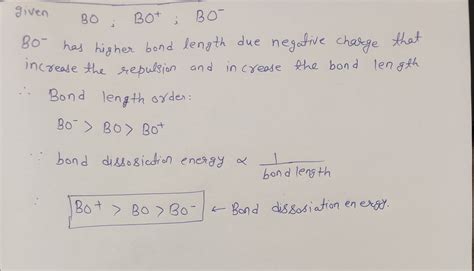 given BO ; BO⁺ ; BO⁻
BO⁻ has higher bond length due negative charge that
increase the repulsion and increase the bond length
∴ Bond length order:
BO⁻ > BO > BO⁺
∵ bond dissosiction energy ∝ 1/bond length
BO⁺ > BO > BO⁻ ← Bond dissosiation energy.